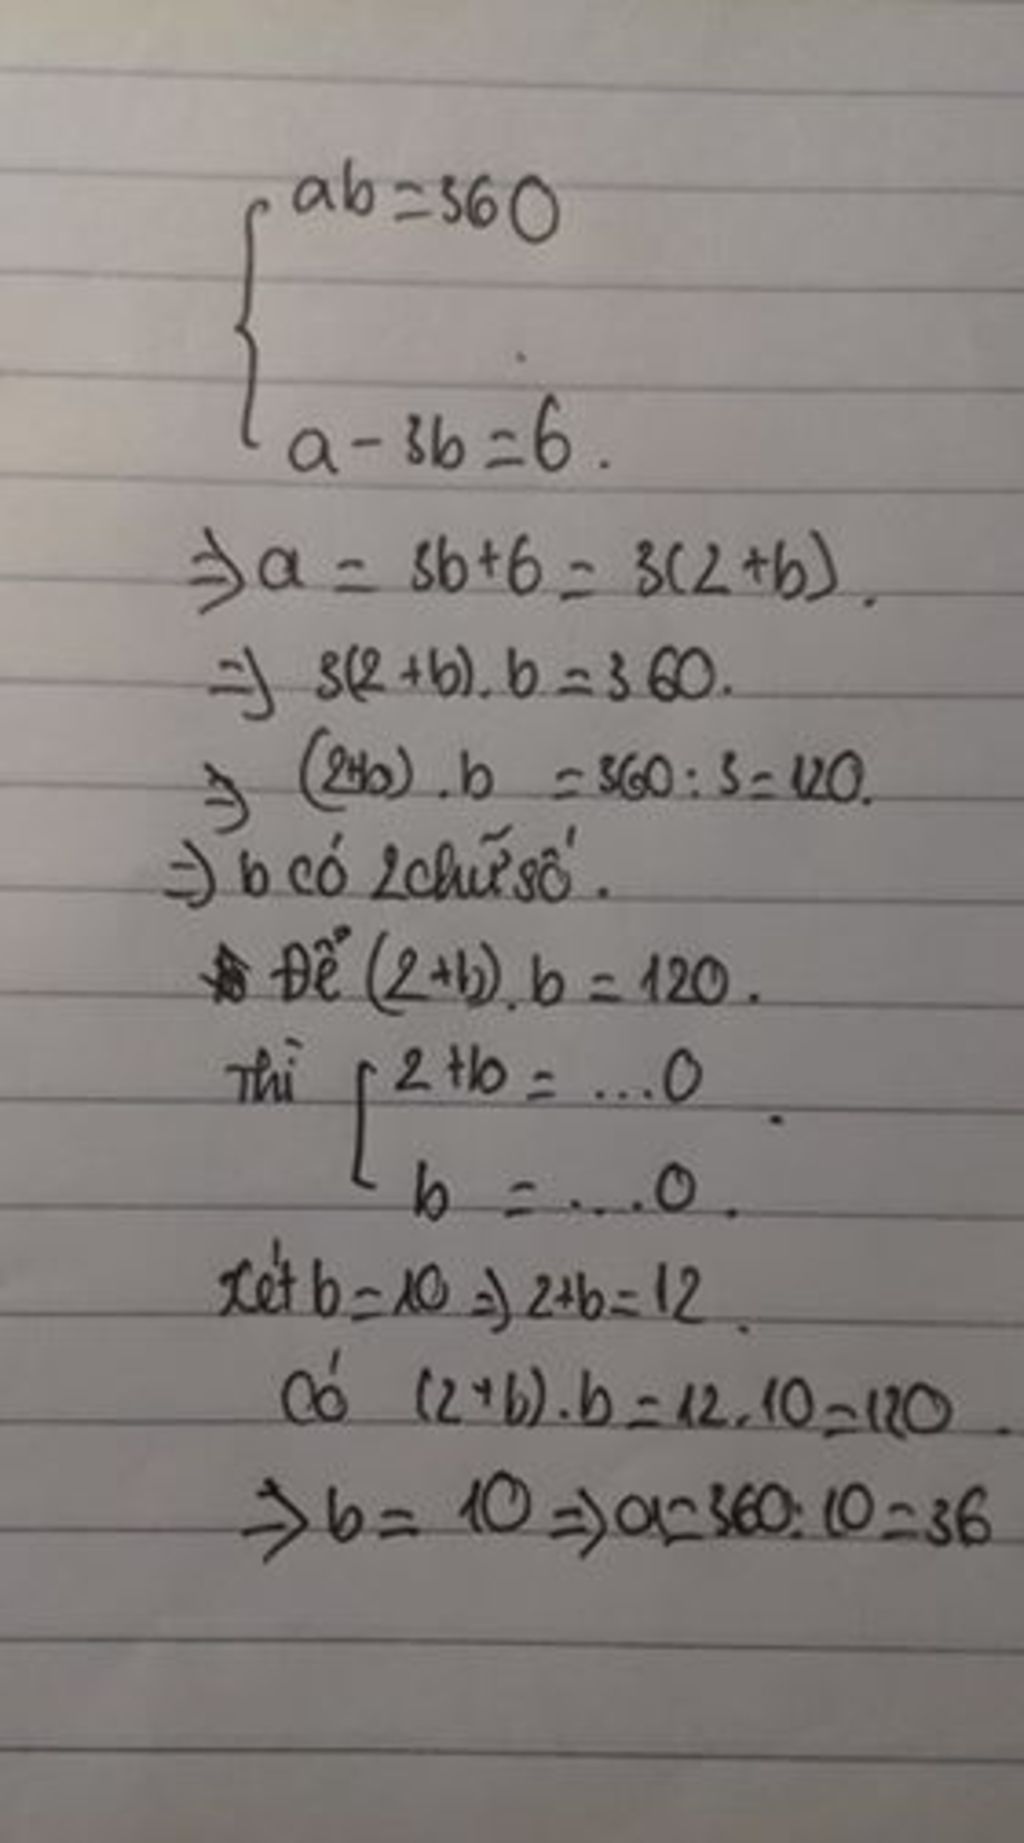 ab=360
a-3b=6.
⇒a = 3b+6 = 3(2+b).
⇒ 3(2+b).b=360.
⇒ (2+b).b =360:3=120.
⇒ b có 2 chữ số.
Để (2+b).b = 120.
Thì 2+b = ...0.
b = ....0.
Xét b=10 ⇒ 2+b=12.
Có (2+b).b=12.10=120.
⇒ b = 10 ⇒ a=360:10=36